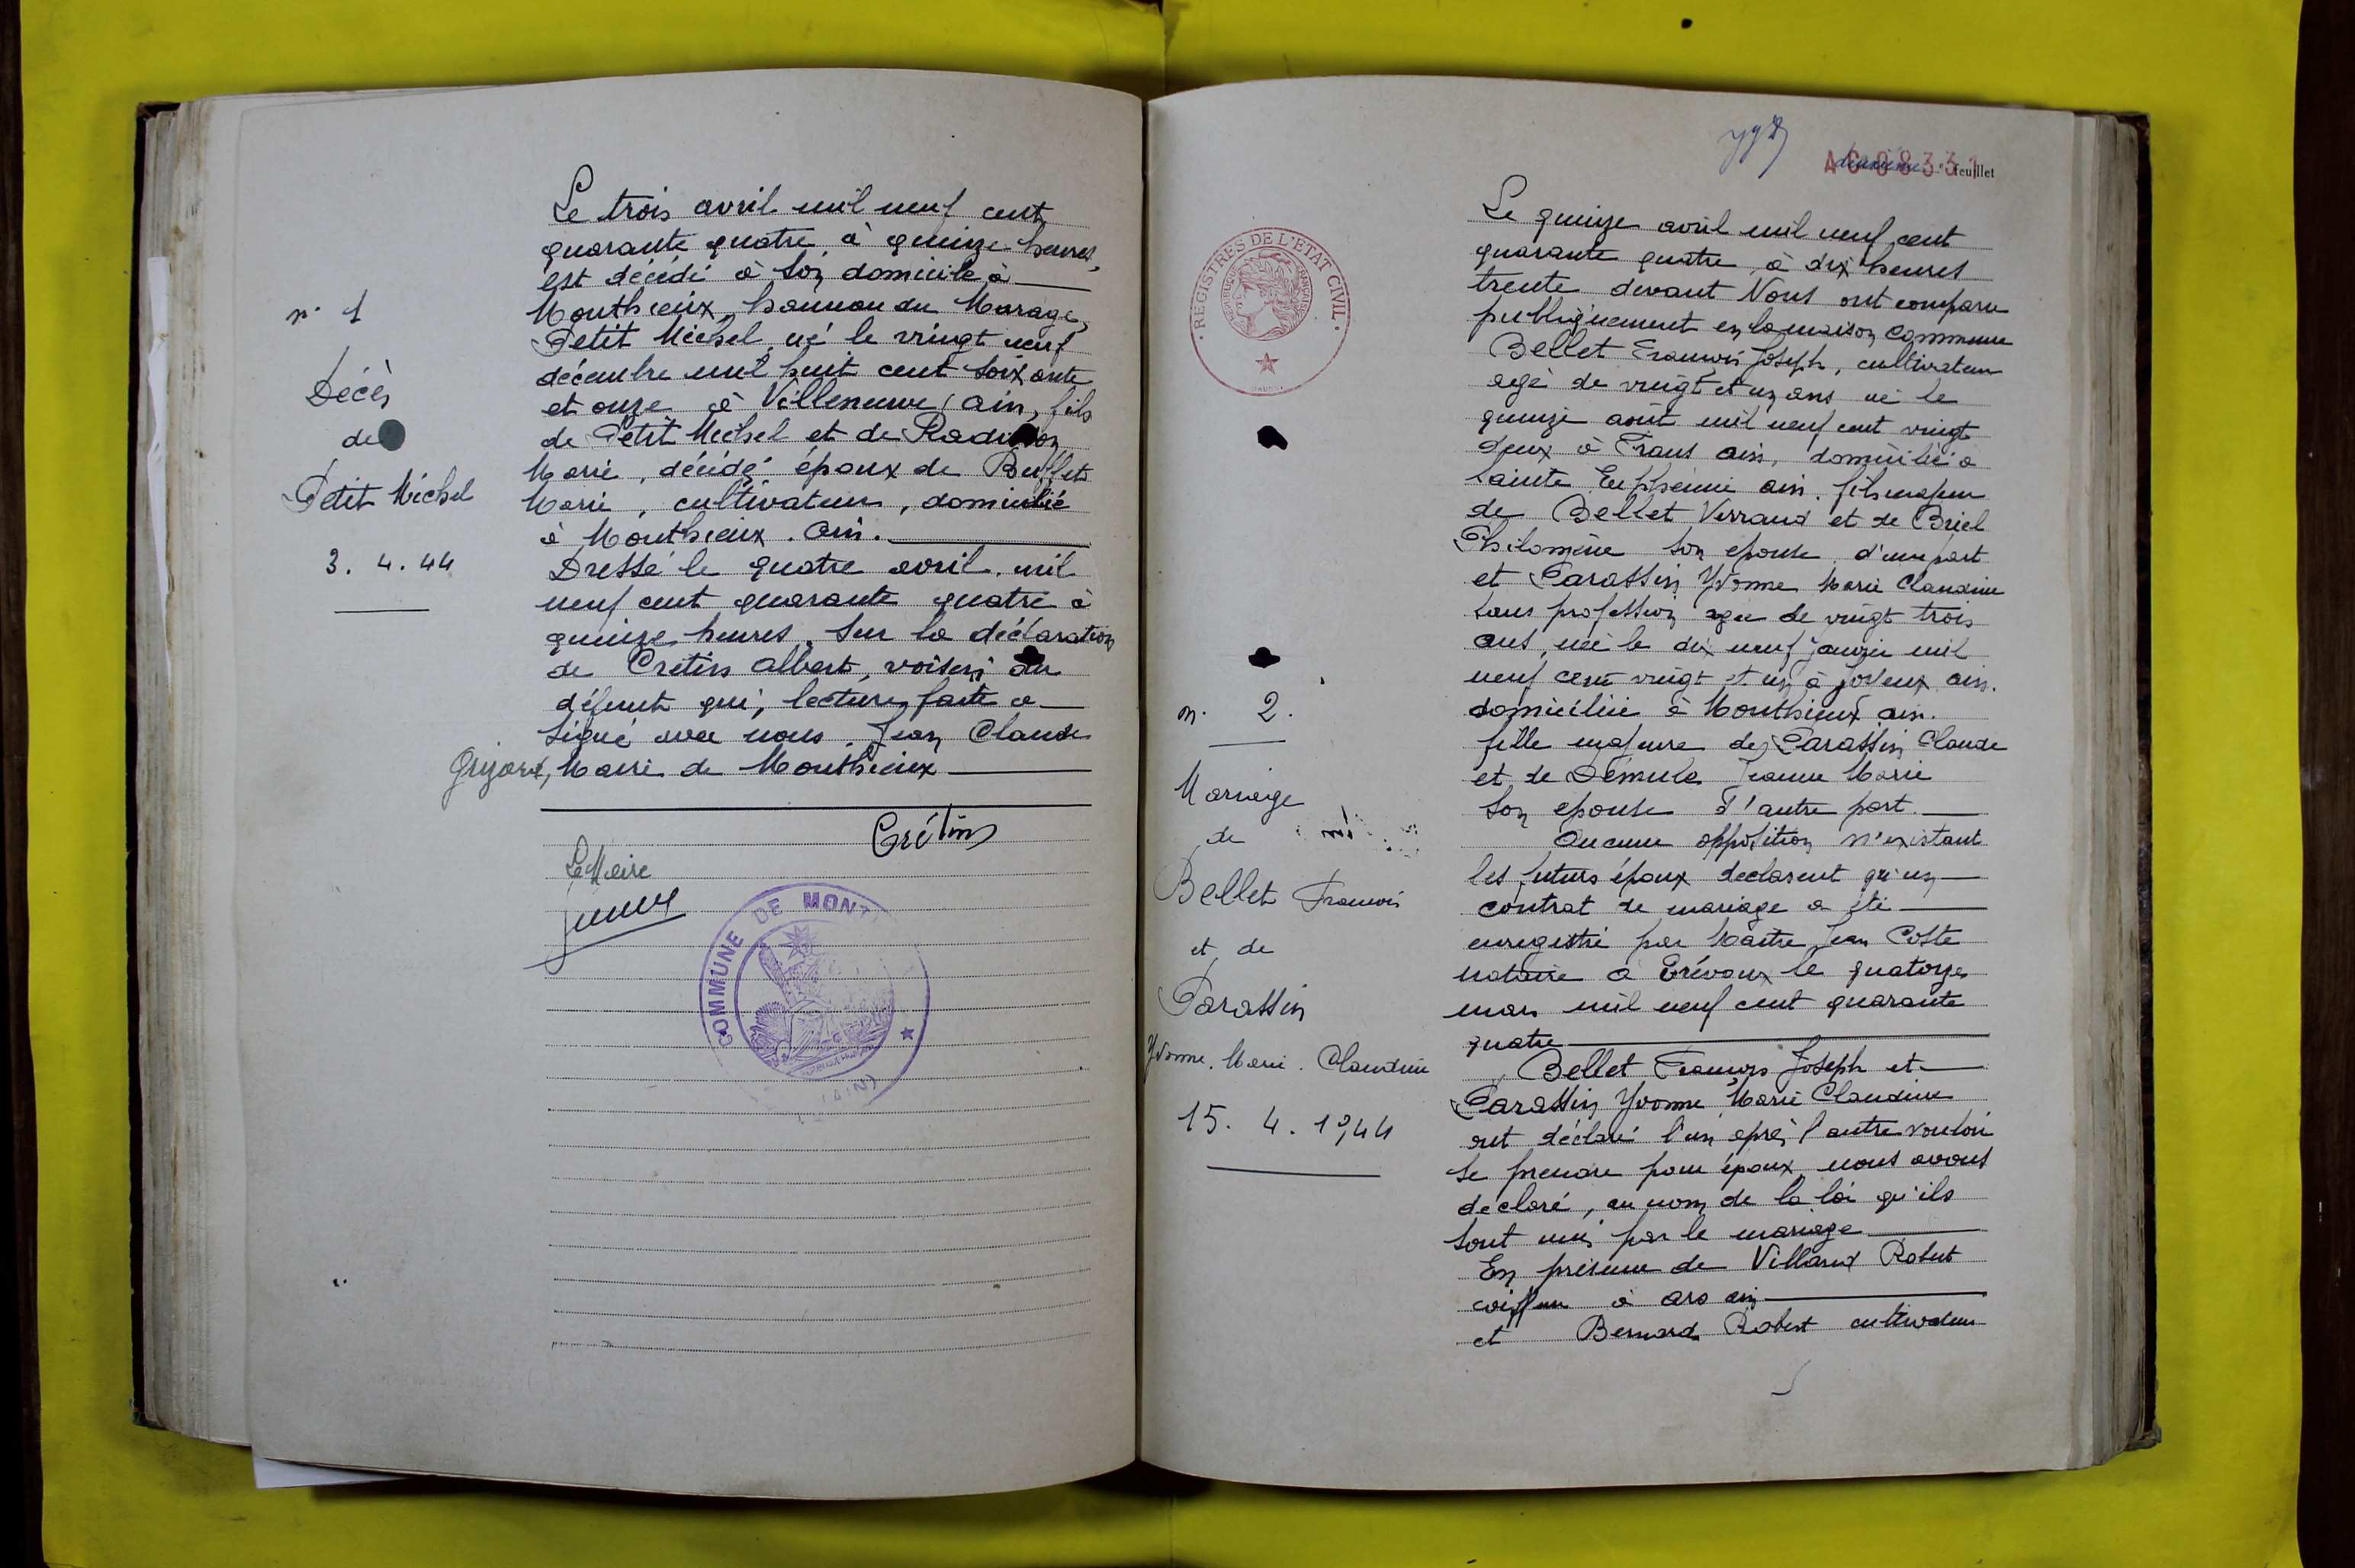 n° 1
Décès
de
Petit Michel
3. 4. 44
Le trois avril mil neuf cent
quarante quatre à quinze heures,
est décédé à son domicile à
Monthieux, hameau du Marage,
Petit Michel né le vingt neuf
décembre mil huit cent soixante
et onze à Villeneuve, ain, fils
de Petit Michel et de
Marie, décédé époux de Buffet
Marie, cultivateur, domicilié
à Monthieux. Ain.
Dressé le quatre avril. mil
neuf cent quarante quatre à
quinze heures, sur la déclaration
de Cretin Albert, voisin du
défunt qui, lecture faite a
signé avec nous. Jean Claude
Grizard, Maire de Monthieux
Crétin
Le Maire
COMMUNE DE MONT
(AIN)
deuxième feuillet
REGISTRES DE L'ETAT CIVIL
REPUBLIQUE FRANÇAISE
n° 2.
Mariage
de
Bellet François
et de
Parassin
Yvonne. Marie. Claudine
15. 4. 1944
Le quinze avril mil neuf cent
quarante quatre, à dix heures
trente devant Nous ont comparu
publiquement en la maison commune
Bellet François Joseph, cultivateur
agé de vingt et un ans né le
quinze août mil neuf cent vingt
deux à Frans ain, domicilié à
Sainte Euphémie ain. fils majeur
de Bellet Verrand et de Briel
Philomène son épouse d'une part
et Parassin Yvonne Marie Claudine
sans profession agée de vingt trois
ans, née le dix neuf janvier mil
neuf cent vingt et un à Joyeux ain.
domiciliée à Monthieux ain.
fille majeure de Parassin Claude
et de Démule Jeanne Marie
son epouse d'autre part.
Aucune opposition n'existant
les futurs époux declarent qu'un
contrat de mariage a été
enregistré par Maître Jean Coste
notaire à Trévoux le quatorze
mars mil neuf cent quarante
quatre
Bellet François Joseph et
Parassin Yvonne Marie Claudine
ont déclaré l'un après l'autre vouloir
se prendre pour époux, nous avons
declaré, au nom de la loi qu'ils
sont unis par le mariage
En présence de Villard Robert
coiffeur à Ars ain
et Bernard Robert cultivateur